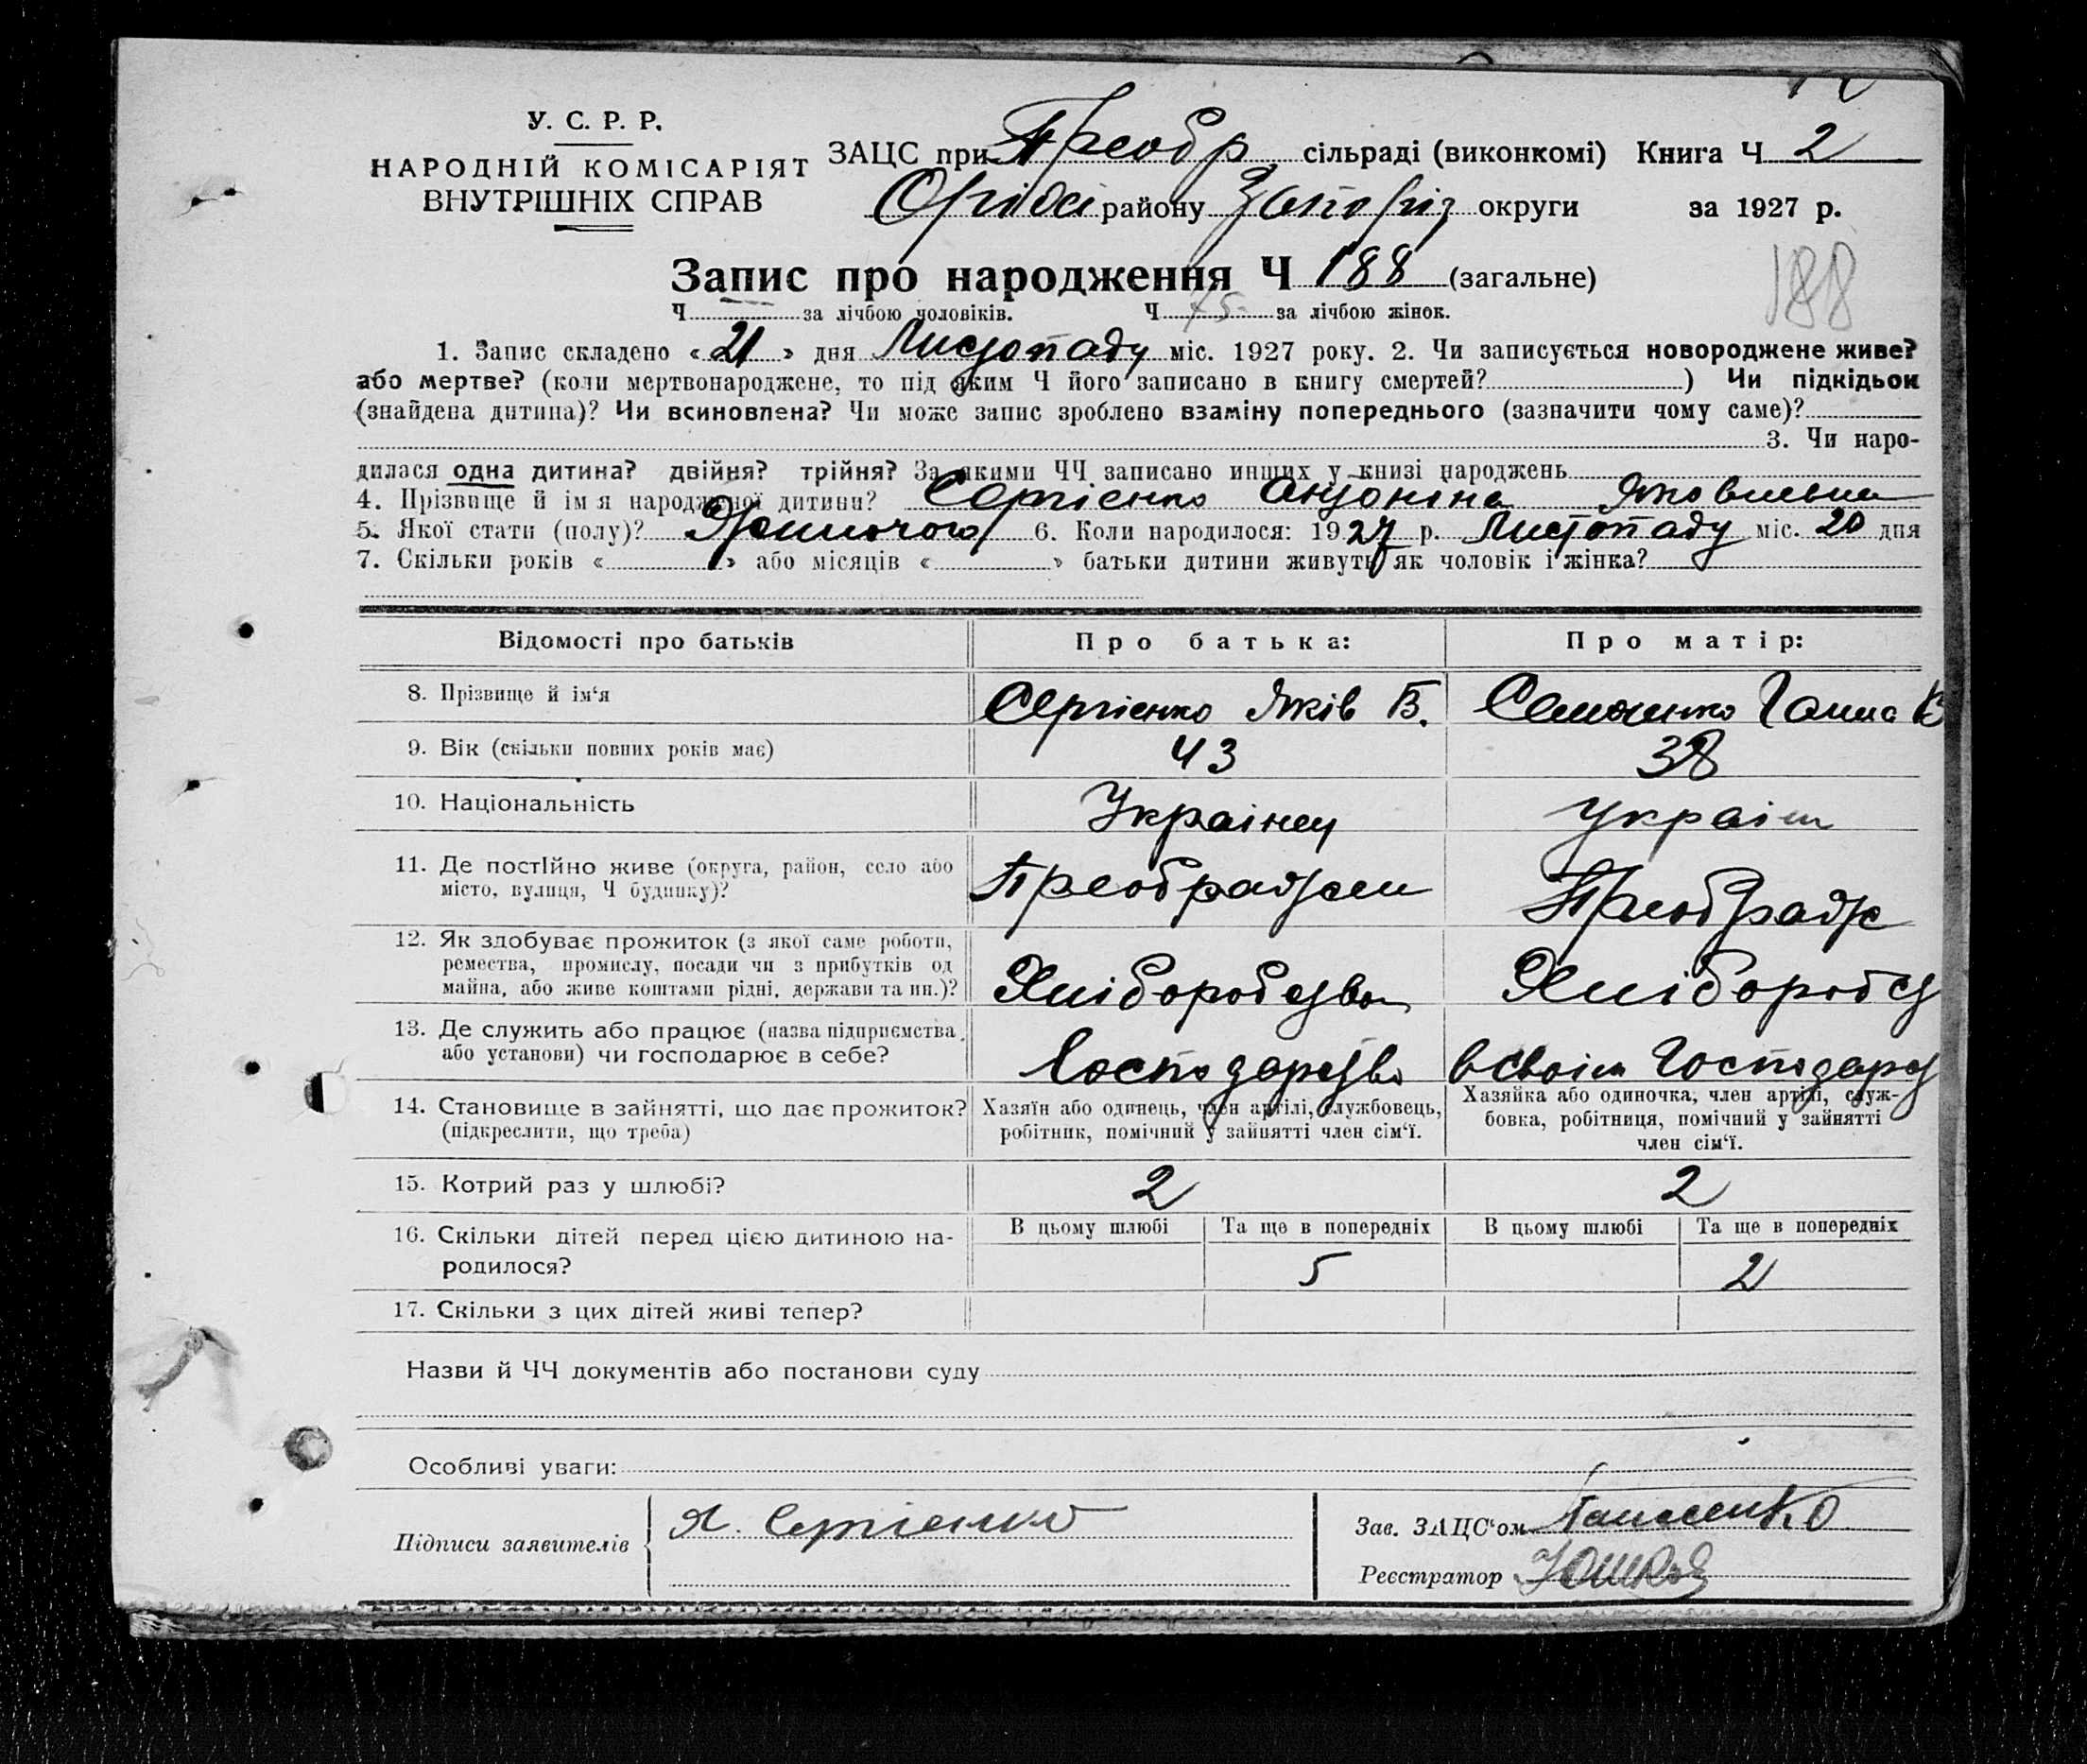 У. С. Р. Р.
НАРОДНІЙ КОМІСАРІЯТ
ВНУТРІШНІХ СПРАВ
ЗАЦС при Преобр. сільраді (виконкомі) Книга Ч 2
Оріхсі району Запоріз округи за 1927 р.
Запис про народження Ч 188 (загальне)
188
Ч за лічбою чоловіків. Ч 75 за лічбою жінок.
1. Запис складено « 21 » дня Листопаду міс. 1927 року. 2. Чи записується новороджене живе?
або мертве? (коли мертвонароджене, то під яким Ч його записано в книгу смертей? ) Чи підкідьок
(знайдена дитина)? Чи всиновлена? Чи може запис зроблено взаміну попереднього (зазначити чому саме)?
3. Чи наро-
дилася одна дитина? двійня? трійня? За якими ЧЧ записано инших у книзі народжень
4. Прізвище й ім я народженої дитини? Сергієнко Антоніна Яковлевна
5. Якої стати (полу)? Жиночого 6. Коли народилося: 1927 р. Листопаду міс. 20 дня
7. Скільки років « » або місяців « » батьки дитини живуть як чоловік і жінка?
Відомості про батьків Про батька: Про матір:
8. Прізвище й ім‘я Сергієнко Яків В. Семененко Ганна К
9. Вік (скільки повних років має) 43 38
10. Національність Украінец украін
11. Де постійно живе (округа, район, село або
місто, вулиця, Ч будинку)? Преображен Преображ
12. Як здобуває прожиток (з якої саме роботи,
ремества, промислу, посади чи з прибутків од
майна, або живе коштами рідні, держави та ин.)? Хліборобство Хлібороб ст
13. Де служить або працює (назва підприємства
або установи) чи господарює в себе? Господарство в своім Господарст
14. Становище в зайнятті, що дає прожиток?
(підкреслити, що треба)
Хазяїн або одинець, член артілі, службовець,
робітник, помічний у зайнятті член сім‘ї.
Хазяйка або одиночка, член артілі, служ-
бовка, робітниця, помічний у зайнятті
член сім‘ї.
15. Котрий раз у шлюбі? 2 2
16. Скільки дітей перед цією дитиною на-
родилося?
В цьому шлюбі Та ще в попередніх В цьому шлюбі Та ще в попередніх
5 2
17. Скільки з цих дітей живі тепер?
Назви й ЧЧ документів або постанови суду
Особливі уваги:
Підписи заявителів Я. Сергіенко
Зав. ЗАЦС‘ом Панасенко
Реєстратор